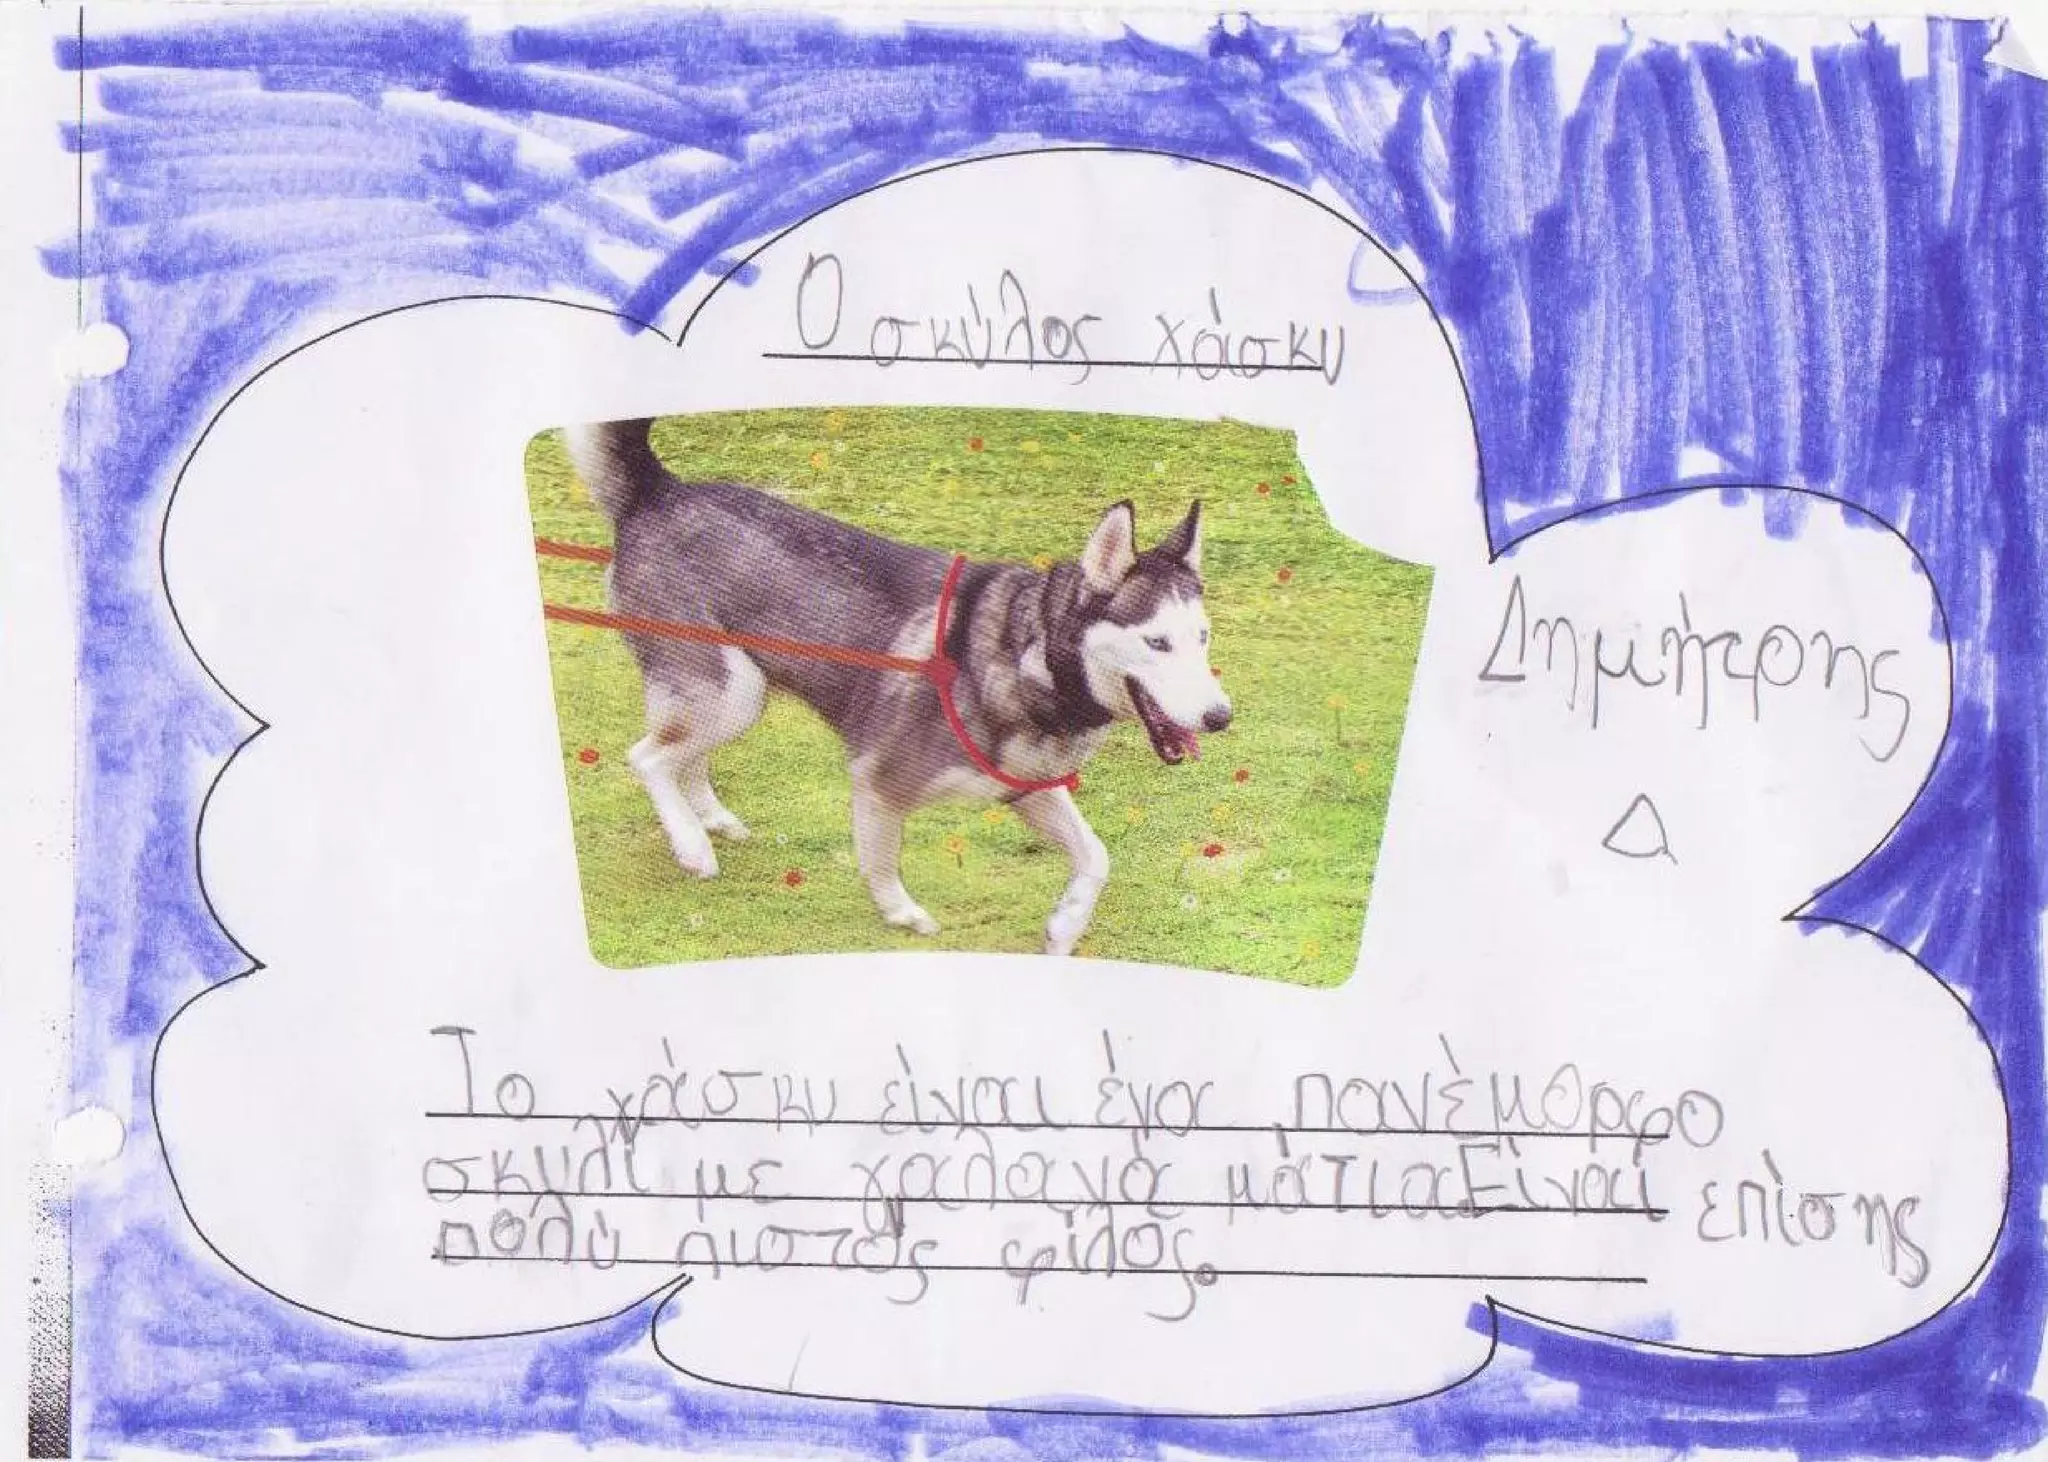 Ο σκύλος χάσκυ
Δημήτρης
Δ
Το χάσκυ είναι ένα πανέμορφο
σκυλί με γαλανά μάτιαΕίναι επίσης
πολύ πιστός φίλος.